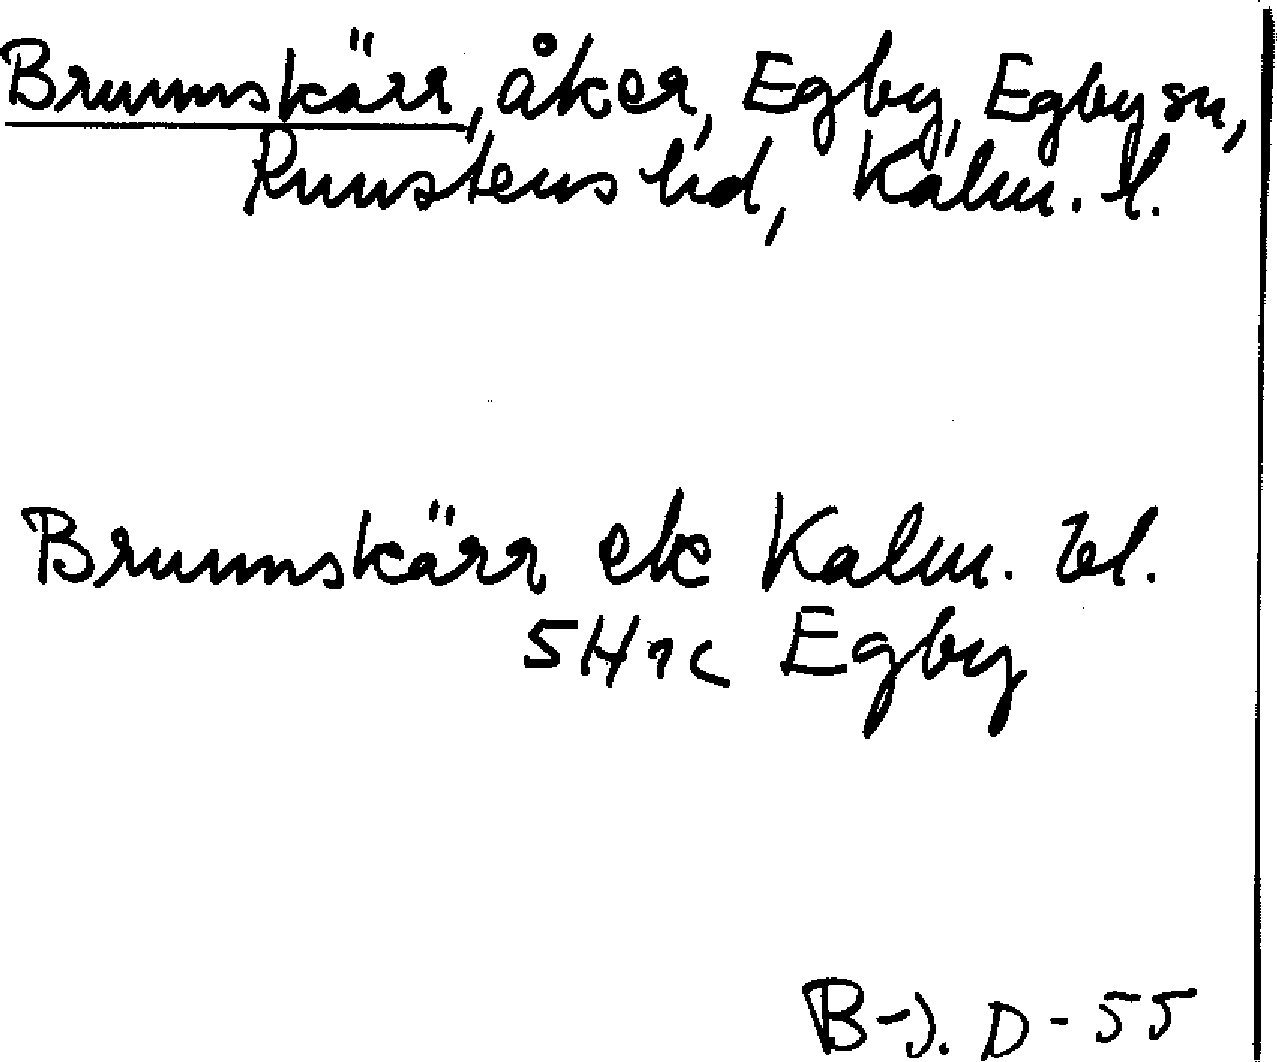 Brunnskärr, åker, Egby, Egby sn,
Runstens hd, Kalm. l.
Brunnskärr ek Kalm. bl.
5H7c Egby
B-J. D-55